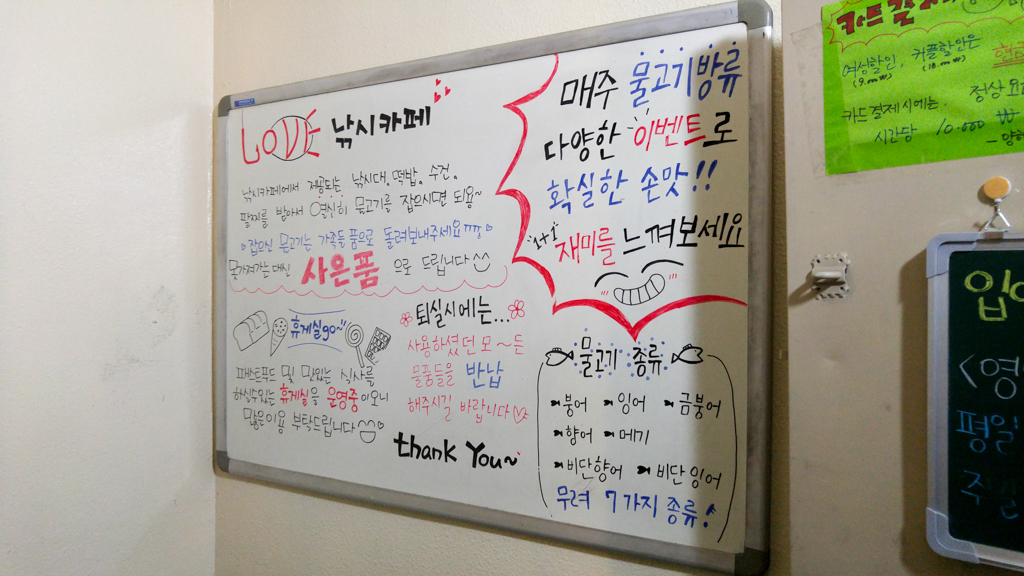 LOVE 낚시카페
낚시카페에서 제공되는 낚시대, 떡밥, 수건,
팔찌를 받아서 열심히 물고기를 잡으시면 되용~
잡으신 물고기는 가족들 품으로 돌려보내주세요
못가져가는 대신 사은품 으로 드립니다
휴게실go~
패스트푸드 및 맛있는 식사를
하실수있는 휴게실을 운영중이오니
많은이용 부탁드립니다
퇴실시에는...
사용하셨던 모~든
물품들을 반납
해주시길 바랍니다
thank You~
매주 물고기방류
다양한 이벤트로
확실한 손맛!!
1+1
재미를 느껴보세요
물고기 종류
붕어 잉어 금붕어
향어 메기
비단향어 비단잉어
무려 7가지 종류!
카드결
여성할인, 커플할인은
(9.000₩) (18.000₩)
카드결제시에는 정상요
시간당 10.000 ₩
입
<영
평일
주